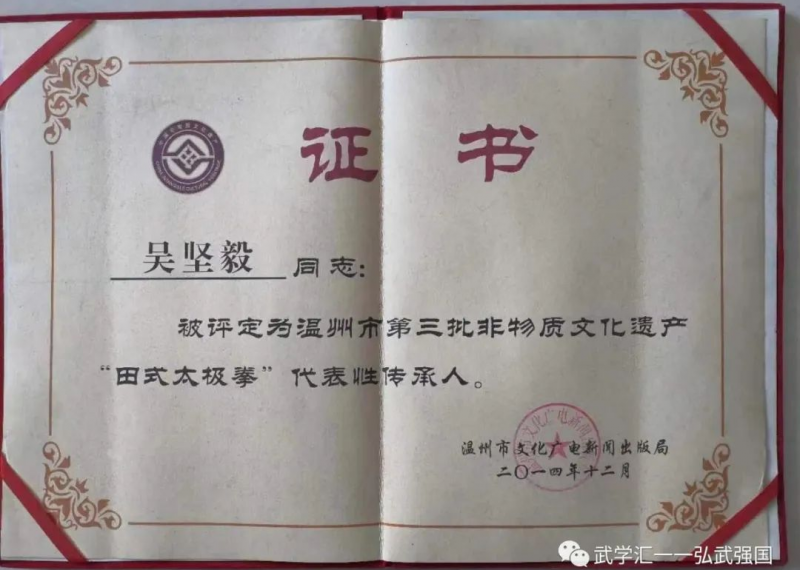 证书
吴坚毅 同志：
被评定为温州市第三批非物质文化遗产
“田式太极拳”代表性传承人。
温州市文化广电新闻出版局
二〇一四年十二月
武学汇一一弘武强国